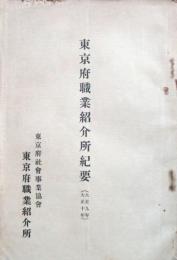 東京府職業紹介所紀要（大正九年
大正十年）
東京府社會事業協會
東京府職業紹介所